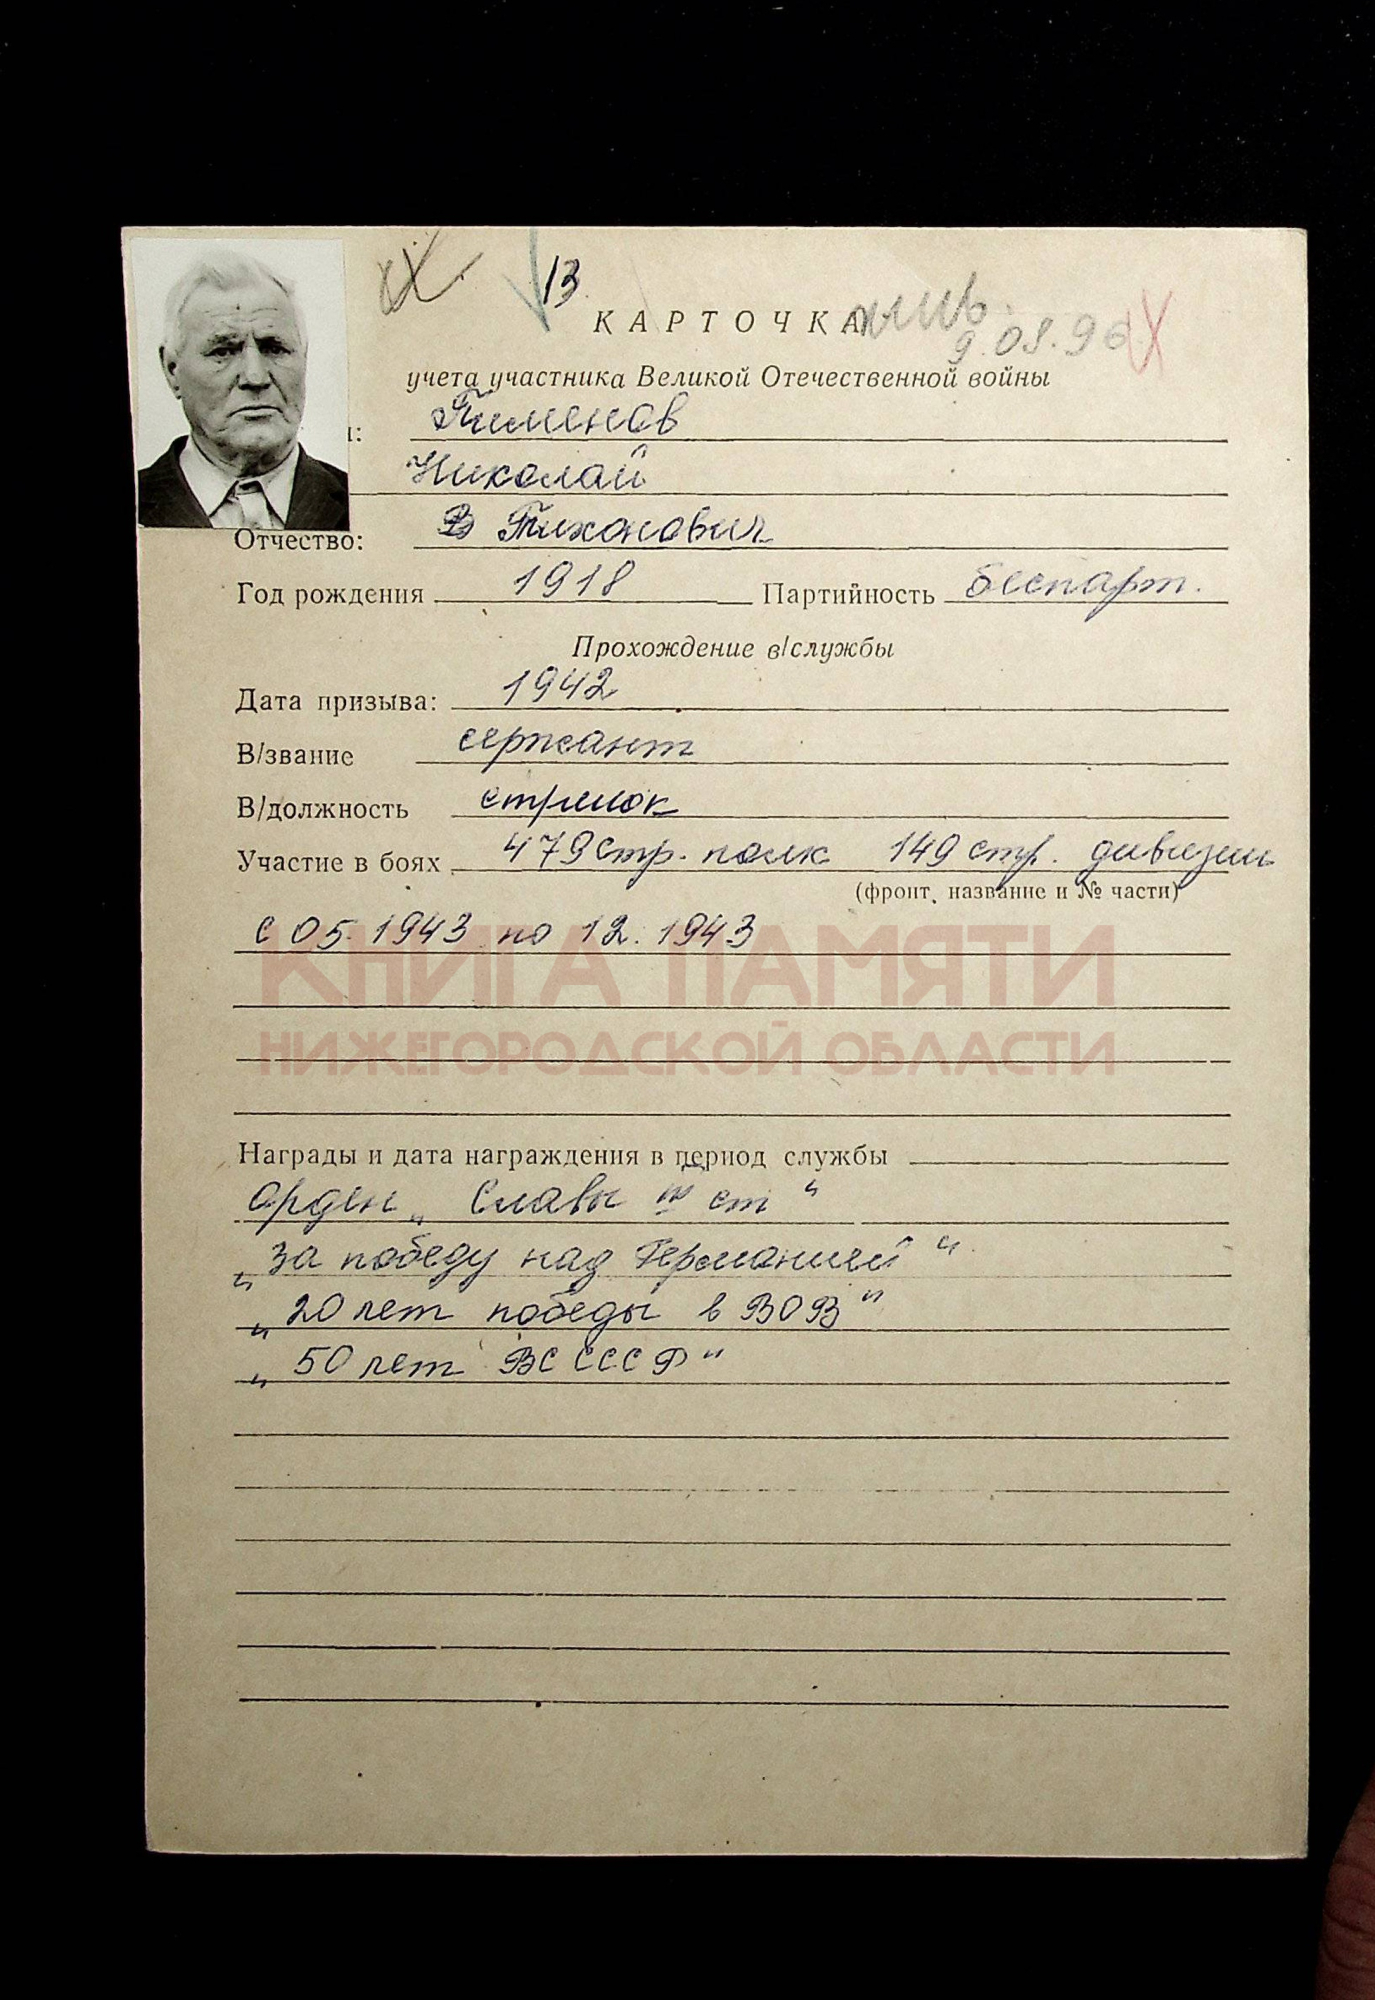 13
КАРТОЧКА
жив.
9.05.96
учета участника Великой Отечественной войны
Пименов
Николай
Отчество: В Тихонович
Год рождения 1918 Партийность беспарт.
Прохождение в/службы
Дата призыва: 1942
В/звание сержант
В/должность стрелок
Участие в боях 479 стр. полк 149 стр. дивизии
(фронт, название и № части)
с 05. 1943 по 12. 1943
КНИГА ПАМЯТИ
НИЖЕГОРОДСКОЙ ОБЛАСТИ
Награды и дата награждения в период службы
орден „Славы III ст“
„За победу над Германией“
„20 лет победы в ВОВ“
„50 лет ВС СССР“